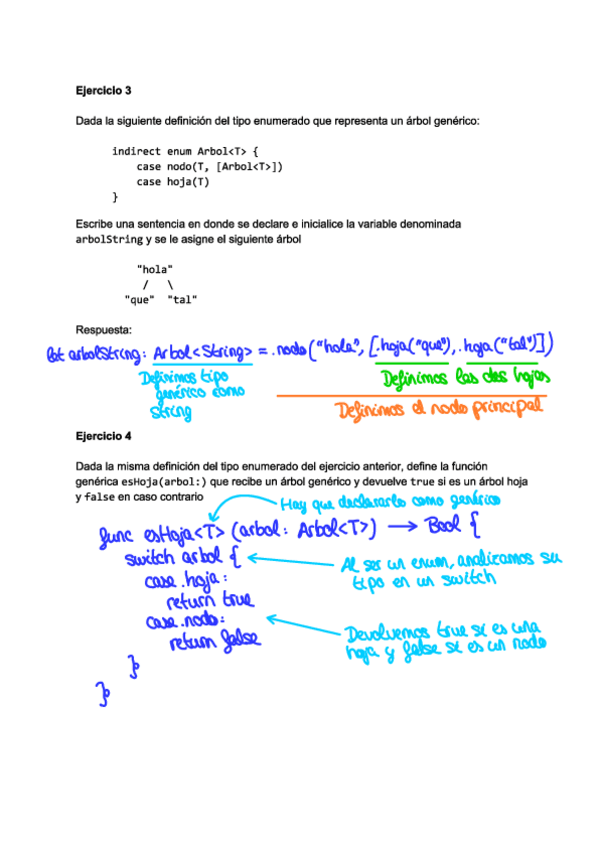 Ejercicio 3
Dada la siguiente definición del tipo enumerado que representa un árbol genérico:
indirect enum Arbol<T> {
case nodo(T, [Arbol<T>])
case hoja(T)
}
Escribe una sentencia en donde se declare e inicialice la variable denominada
arbolString y se le asigne el siguiente árbol
"hola"
/ \
"que" "tal"
Respuesta:
let arbolString: Arbol<String> = .nodo("hola", [.hoja("que"), .hoja("tal")])
Definimos tipo
genérico como
String
Definimos las dos hojas
Definimos el nodo principal
Ejercicio 4
Dada la misma definición del tipo enumerado del ejercicio anterior, define la función
genérica esHoja(arbol:) que recibe un árbol genérico y devuelve true si es un árbol hoja
y false en caso contrario
Hay que declararlo como genérico
func esHoja<T> (arbol: Arbol<T>) → Bool {
switch arbol {
Al ser un enum, analizamos su
tipo en un switch
case .hoja:
return true
case .nodo:
return false
Devolvemos true si es una
hoja y false si es un nodo
}
}